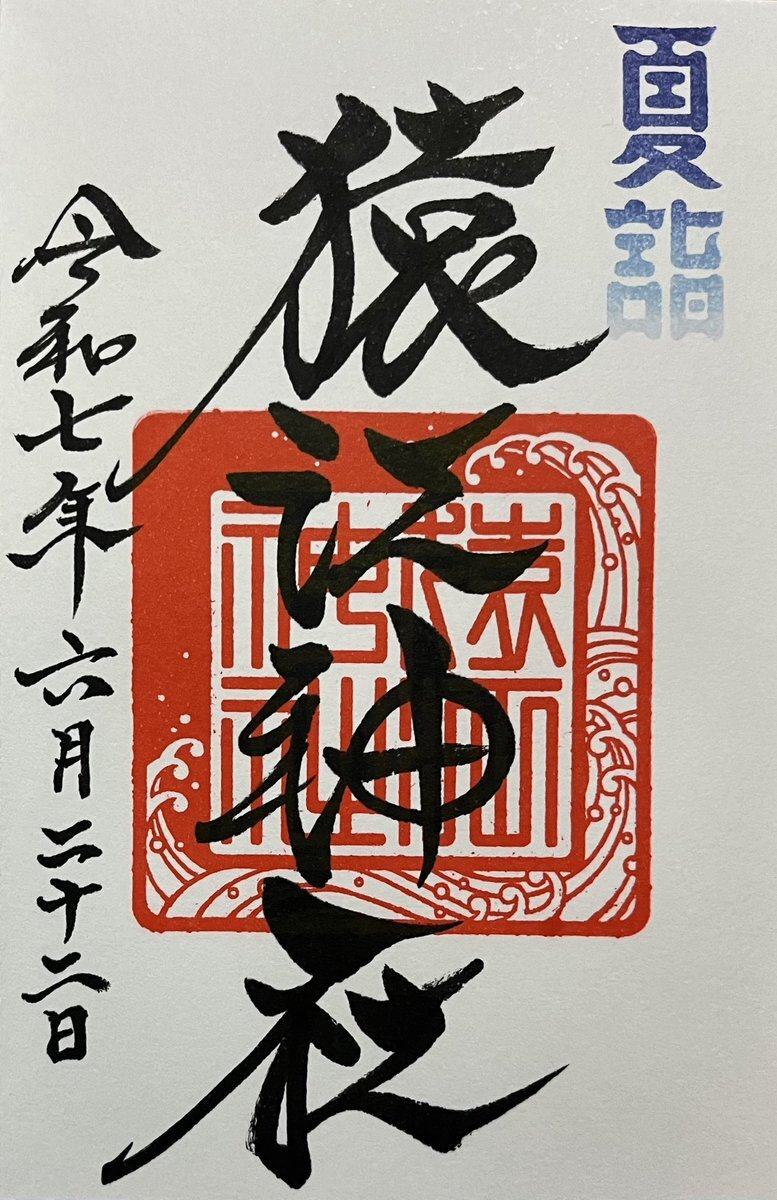 夏詣
猿江神社
猿江神社
令和七年六月二十二日